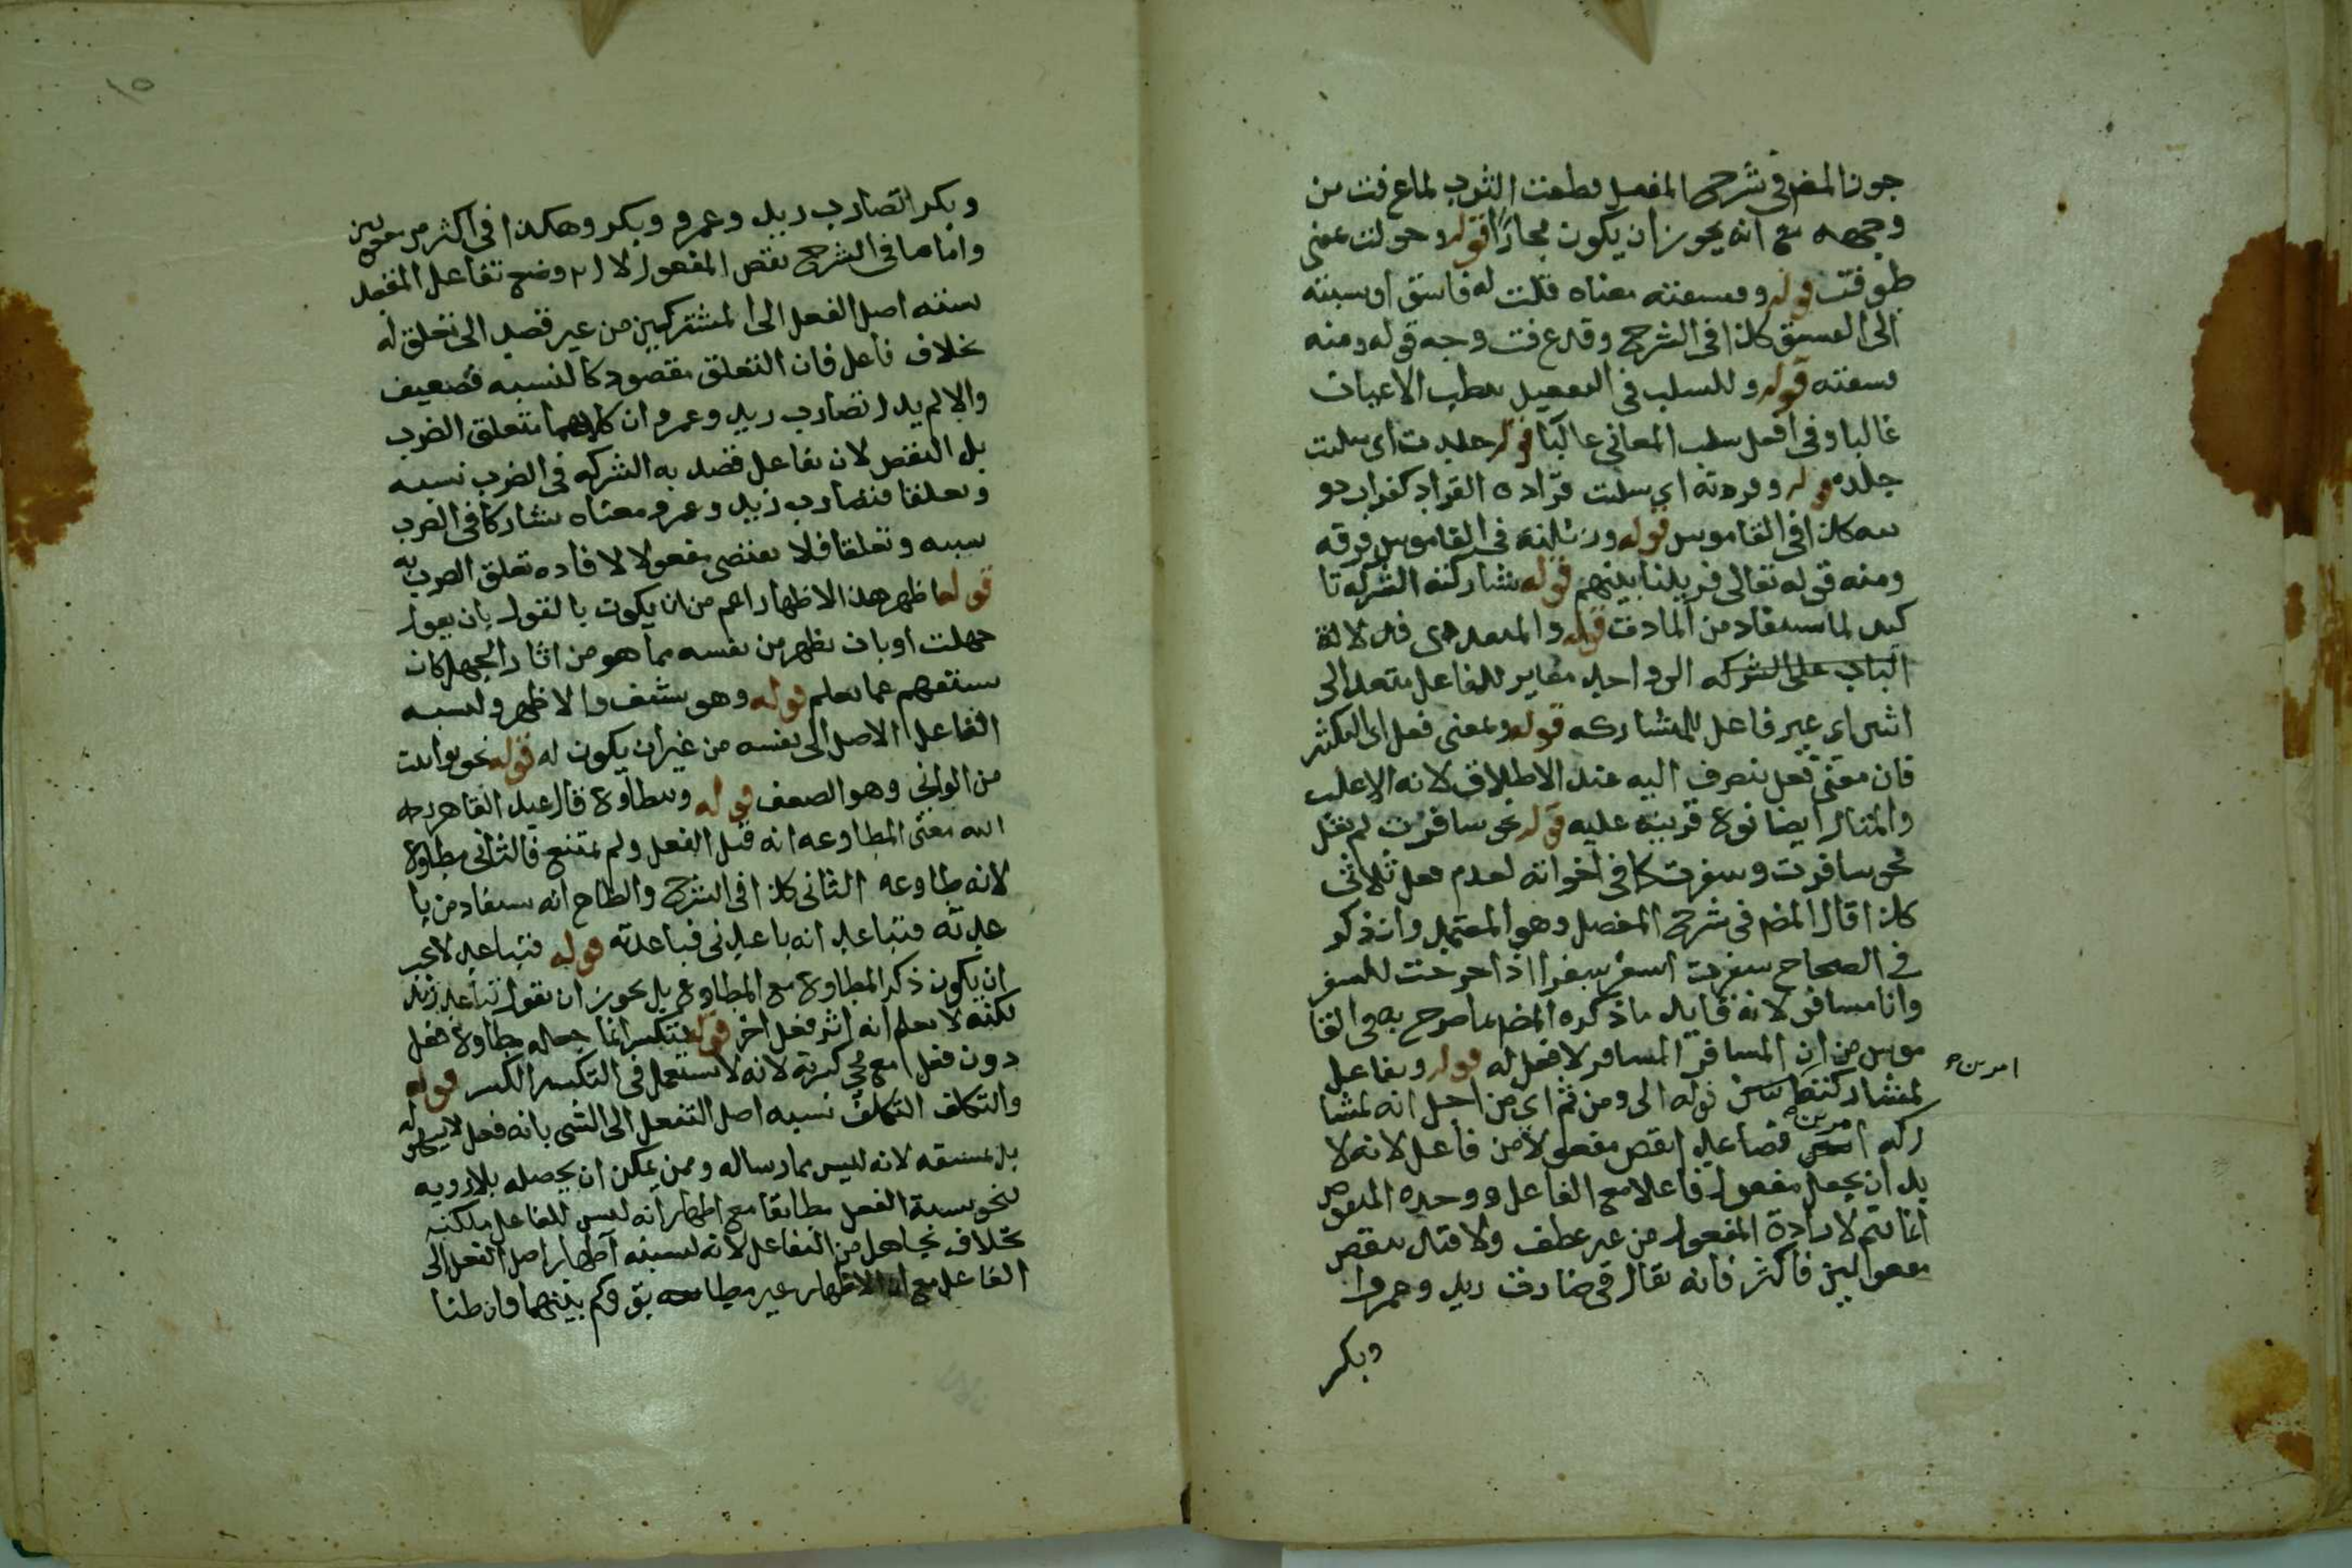 جوز المص في شرح المفصل قطعت الثوب لما عرفت من
وجهه مع انه يجوز ان يكون مجازا قوله وحولت بمعنى
طوفت قوله وفسقته معناه قلت له فاسق او نسبته
الى الفسق كذا في الشرح وقد عرفت وجه قوله ومنه
فسقته قوله وللسلب في التفعيل سلب الاعيان
غالبا وفي افعل سلب المعاني غالبا قوله جلدت اى سلت
جلده قوله وقردته اي سلت قراده القراد كغراب دو
يبه كذا في القاموس قوله وزيلته في القاموس فرقه
ومنه قوله تعالى فزيلنا بينهم قوله شاركته الشركة تا
كيد لما يستفاد من المادة قوله والمتعدى فدلالة
الباب على الشركه الى واحد مغاير للفاعل متعد الى
اثنين اي غير فاعل للمشاركه قوله وبمعنى فعل اى للتكثير
فان معنى فعل ينصرف اليه عند الاطلاق لانه الاغلب
والمثال ايضا نوع قرينة عليه قوله نحو سافرت لم يقل
نحو سافرت وسفرت كما في اخواته لعدم فعل ثلاثى
كذا قال المص في شرح المفصل وهو المعتمد وان ذكر
في الصحاح سفرت اسفر سفرا اذا خرجت للسفر
وانا مسافر لانه قابل ما ذكره المص بما صرح به في القا
موس من ان المسافر المسافر لا فعل له قوله وتفاعل
لمشاركة قوله الى ومن ثم اي من اجل انه لمشا
امرين
ركه امرين فصاعدا نقص مفعولا من فاعل لانه لا
بد ان يجعل مفعول فاعلا مع الفاعل ووحده المنقوص
انما يتم لارادة المفعول من غير عطف والا قتال ينقص
مفعولين فاكثر فانه يقال في ضارب زيد وعمروا
وبكر
وبكرا تضارب زيد وعمرو وبكر وهكذا في اكثر من مفعولين
واما ما في الشرح نقص المفعول لان وضع تفاعل
نسبة اصل الفعل الى المشتركين من غير قصد الى تعلق له
بخلاف فاعل فان التعلق مقصود كالنسبه فضعيف
والا لم يدل تضارب زيد وعمرو ان كلاهما متعلق الضرب
بل النقص لان تفاعل قصد به الشركه في الضرب نسبه
وتعلقا فتضارب زيد وعمرو معناه تشاركا في الضرب
نسبه وتعلقا فلا يقتضى مفعولا لافاده تعلق الضرب به
قوله اظهر هذا الاظهار اعم من ان يكون بالقول بان يقول
جهلت او بان يظهر من نفسه مما هو من اثار الجهل كان
يستفهم عما يعلم قوله وهو منتف والاظهر ونسبه
الفاعل الاصل الى نفسه من غير ان يكون له قوله نحو توانيت
من الوانى وهو الضعف قوله ومطاوع قال عبد القاهر رحمه
الله معنى المطاوعه انه قبل الفعل ولم يمتنع فالثانى مطاوع
لانه طاوعه الثانى كذا في الشرح والظاهر انه يستفاد من با
عدته فتباعد انه باعدنى فباعدته قوله فتباعد لا يجب
ان يكون ذكر المطاوع مع المطاوع بل يجوز ان تقول تباعد زيد
لكنه لا يعلم انه اثر فعل اخر قوله فتكسر انما جعله مطاوع فعل
دون فعل مع كسرته لانه لا يستعمل في التكسر الكسر قوله
والتكلف التكلف نسبه اصل التفعل الى الشى بانه فعل
بل بمشقه لانه ليس مما رساله وممن يمكن ان يحصله بلا رويه
نحو نسبة الفعل مطابقا مع اظهار انه ليس للفاعل ملكته
بخلاف تجاهل من التفاعل لانه لنسبته اظهار اصل الفعل الى
الفاعل مع ان الاظهار غير مطابقه وكم بينهما فان طنا